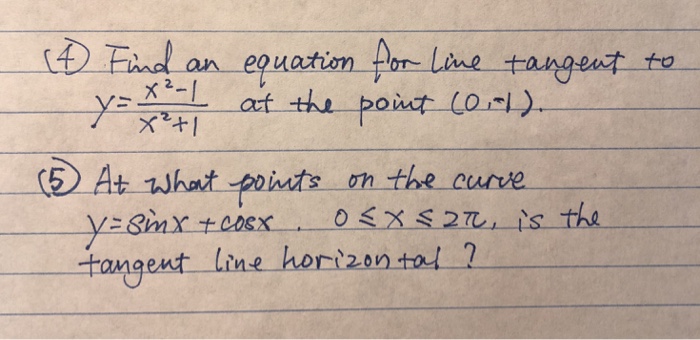 (4) Find an equation for line tangent to
y = x²-1 / x²+1 at the point (0,-1).
(5) At what points on the curve
y = sinx + cosx, 0 ≤ x ≤ 2π, is the
tangent line horizontal ?